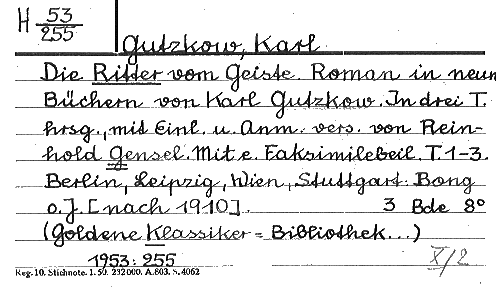 H 53/255
Gutzkow, Karl
Die Ritter vom Geiste. Roman in neun
Büchern von Karl Gutzkow. In drei T.
hrsg., mit Einl. u. Anm. vers. von Rein-
hold Gensel. Mit e. Faksimilebeil. T. 1-3.
Berlin, Leipzig, Wien, Stuttgart: Bong
o. J. [nach 1910]. 3 Bde 8°
(Goldene Klassiker-Bibliothek...)
1953: 255
X/2
Reg. 10. Stichnote. 1. 50. 232000. A. 803. S. 4062